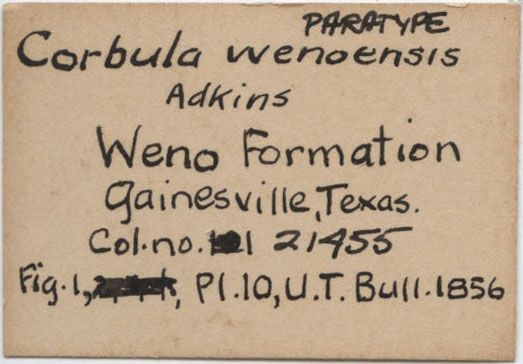 PARATYPE
Corbula wenoensis
Adkins
Weno Formation
Gainesville, Texas.
Col. no. 1 21455
Fig. 1, Pl. 10, U.T. Bull. 1856